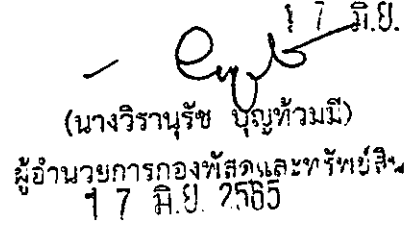 1 7 มิ.ย.
(นางวิรานุรัช บุญท้วมมี)
ผู้อำนวยการกองพัสดุและทรัพย์สิน
1 7 มิ.ย. 2565